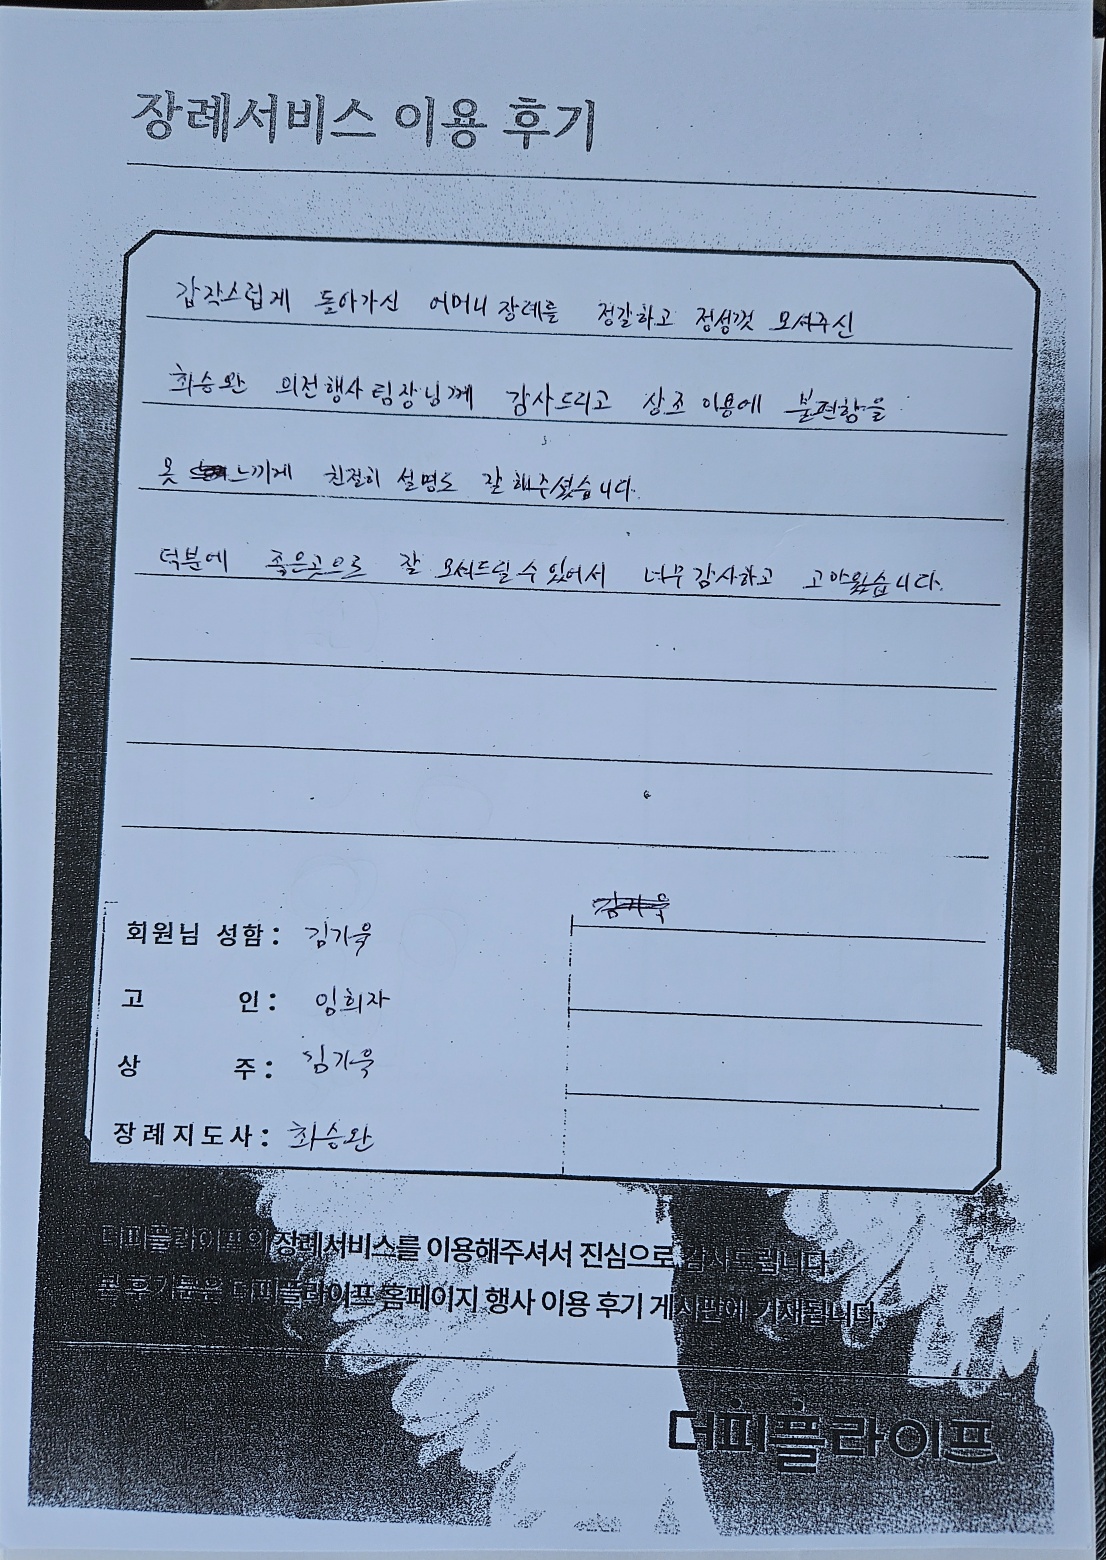 장례서비스 이용 후기
갑작스럽게 돌아가신 어머니 장례를 정갈하고 정성껏 모셔주신
최승완 의전행사팀장님께 감사드리고 상조 이용에 불편함을
못 느끼게 친절히 설명도 잘 해주셨습니다.
덕분에 좋은곳으로 잘 모셔드릴 수 있어서 너무 감사하고 고마웠습니다.
회원님 성함: 김가욱
고 인: 임희자
상 주: 김가욱
장례지도사: 최승완
더피플라이프의 장례서비스를 이용해주셔서 진심으로 감사드립니다.
본 후기문은 더피플라이프 홈페이지 행사 이용 후기 게시판에 기재됩니다.
더피플라이프